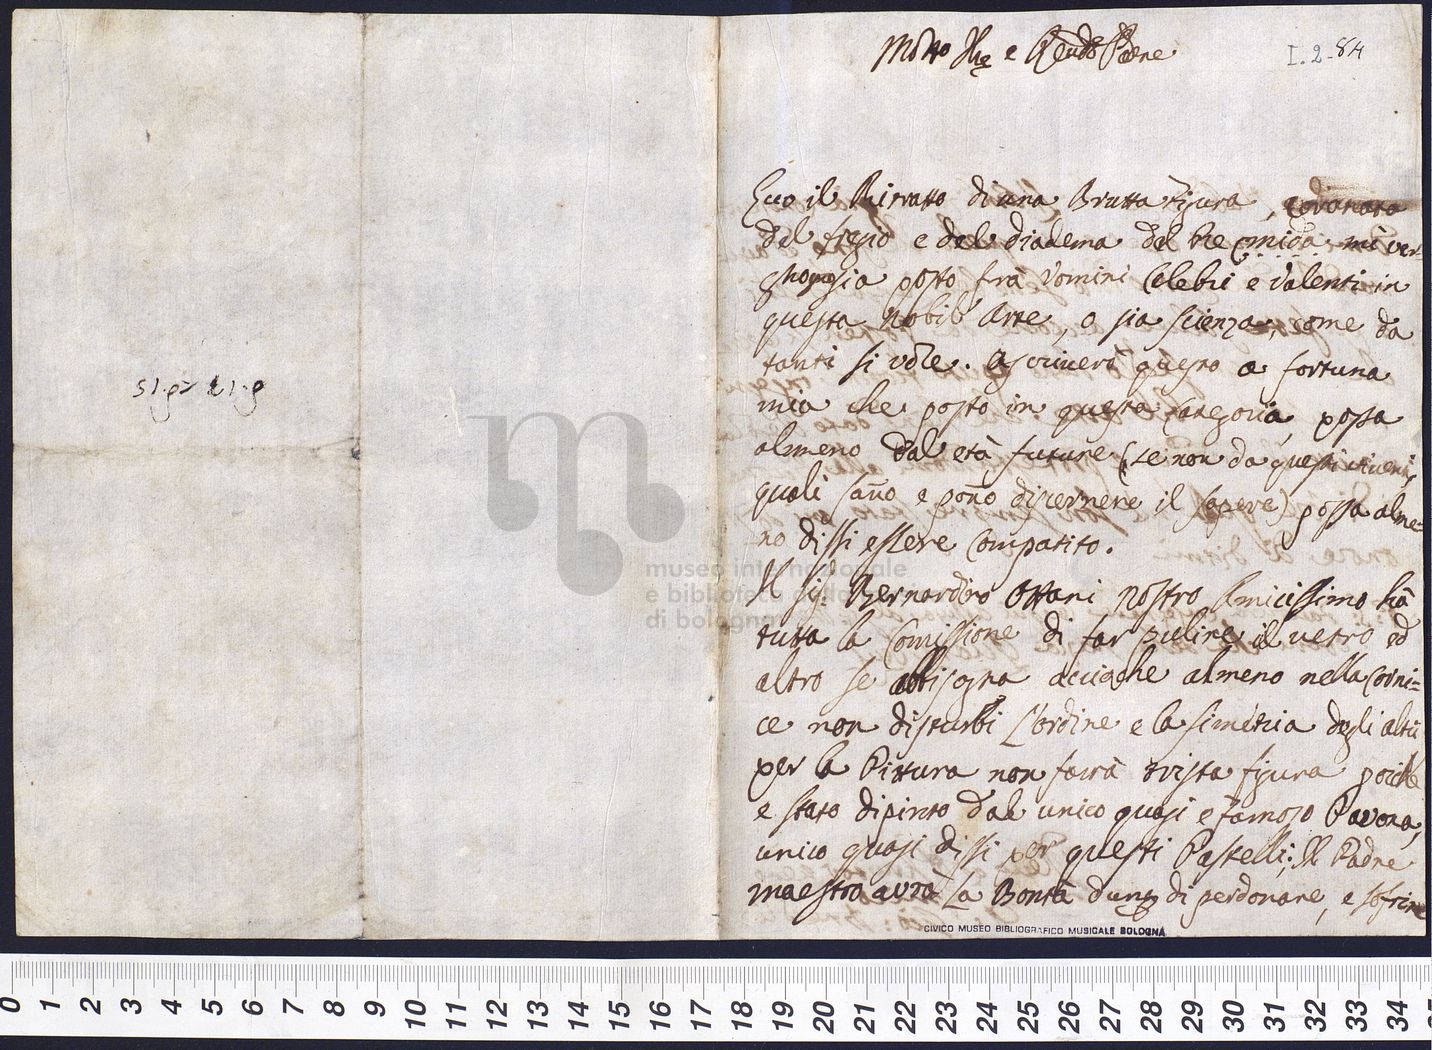 Molto Ill.re e Rendo Padre
I. 2-84
Ecco il Ritratto di una Brutta Figura,
del fregio e del diadema del Re Mida. mi ver=
sia posto frà Vomini Celebri e Valenti in
questa Nobil Arte, o sia scienza, come da
tanti si vole. Ascriverò questo a fortuna
mia che posto in questa Categoria, possa
almeno dal età future (se non da questi viventi,
quali sano e pono discernere il sapere) possa alme=
no dissi essere Compatito.
Il Sig.r Bernardino Ottani nostro Amicissimo hà
tutta la Comissione di far pulire il vetro ed
altro se abbisogna accioche almeno nella Corni=
ce non disturbi L'ordine e la simetria degli altri
per la Pittura non farà trista figura poiche
e stato dipinto dal unico quasi e famoso Pavona,
unico quasi dissi per questi Pastelli; Il Padre
maestro avrà la Bontà dunq di perdonare, e soffrire
museo internazionale
e biblioteca della
di bologna
CIVICO MUSEO BIBLIOGRAFICO MUSICALE BOLOGNA
0 1 2 3 4 5 6 7 8 9 10 11 12 13 14 15 16 17 18 19 20 21 22 23 24 25 26 27 28 29 30 31 32 33 34